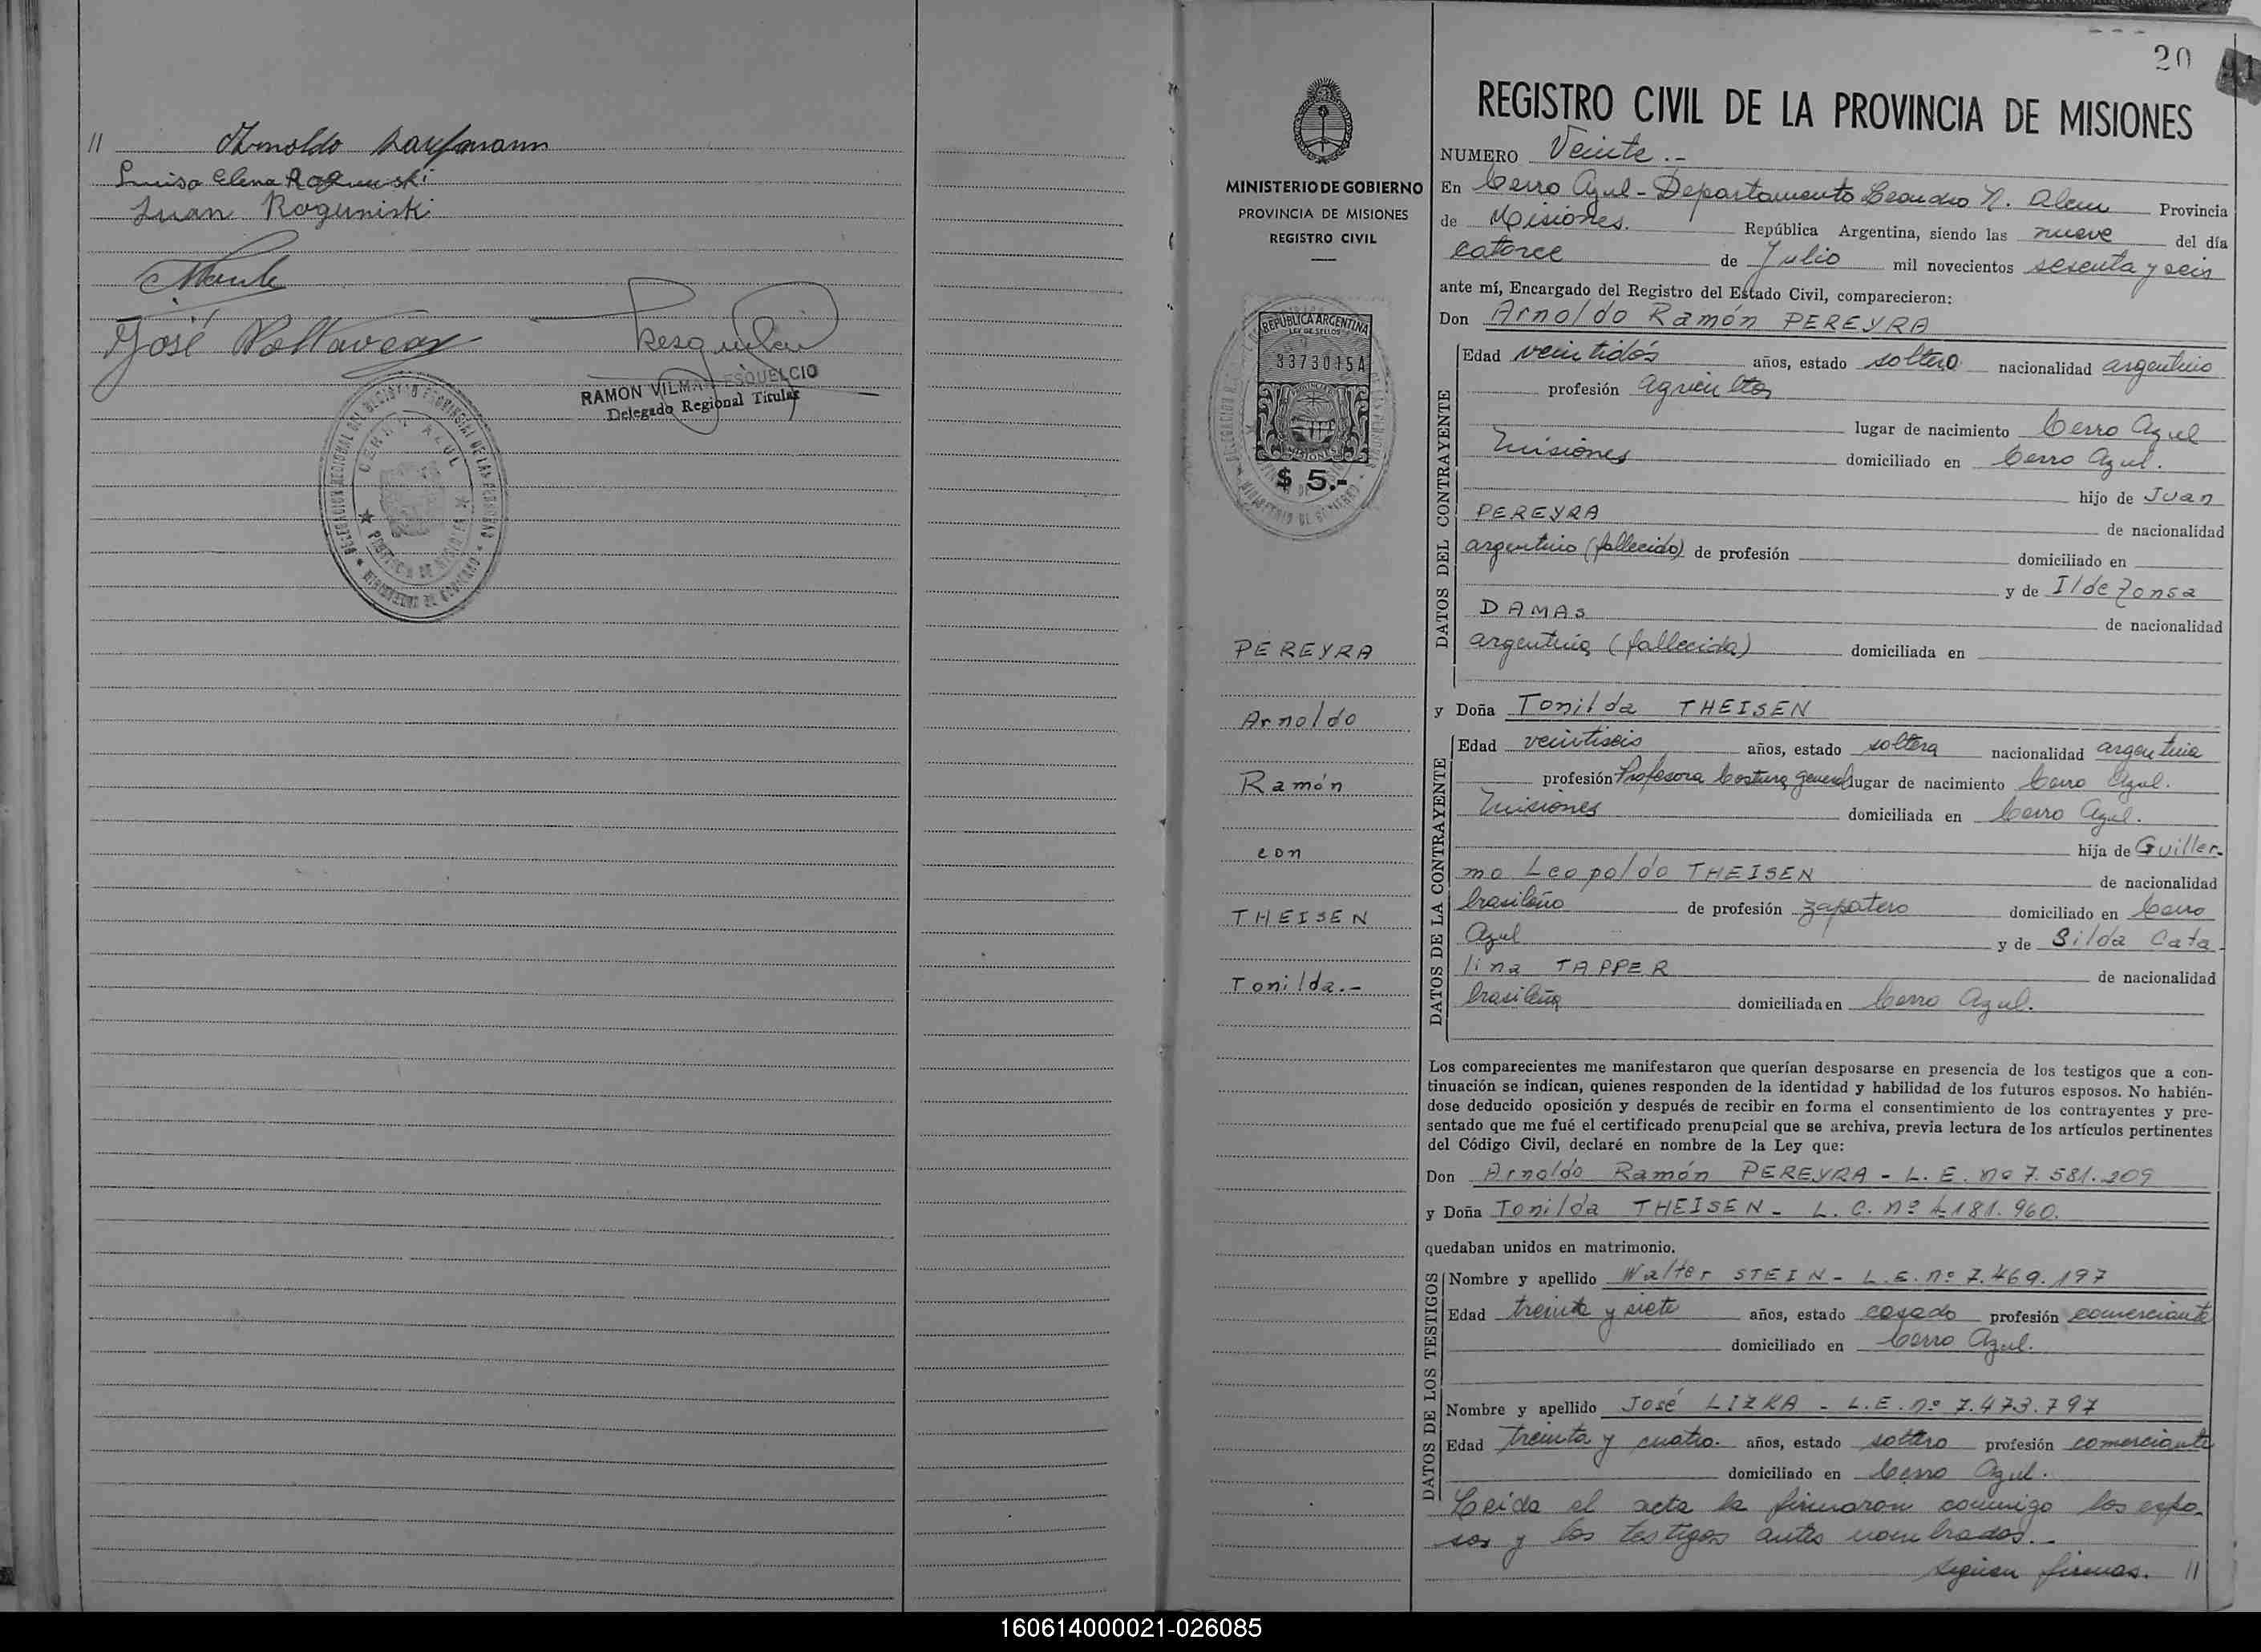 // Arnoldo Kaufmann
Luisa Elena Roguski
Juan Roguniski
José
RAMON VILMAR ESQUELCIO
Delegado Regional Titular
DELEGACION REGIONAL DEL REGISTRO PROVINCIAL DE LAS PERSONAS
CERRO AZUL
PROVINCIA DE MISIONES
MINISTERIO DE GOBIERNO
20
REGISTRO CIVIL DE LA PROVINCIA DE MISIONES
MINISTERIO DE GOBIERNO
PROVINCIA DE MISIONES
REGISTRO CIVIL
REPUBLICA ARGENTINA
LEY DE SELLOS
3373015A
MISIONES
$ 5.-
PEREYRA
Arnoldo
Ramón
con
THEISEN
Tonilda.-
NUMERO Veinte.-
En Cerro Azul - Departamento Leandro N. Alem Provincia
de Misiones. República Argentina, siendo las nueve del día
catorce de Julio mil novecientos sesenta y seis
ante mí, Encargado del Registro del Estado Civil, comparecieron:
Don Arnoldo Ramón PEREYRA
DATOS DEL CONTRAYENTE
Edad veintidós años, estado soltero nacionalidad argentino
profesión agricultor
lugar de nacimiento Cerro Azul
Misiones domiciliado en Cerro Azul.
hijo de Juan
PEREYRA de nacionalidad
argentino (fallecido) de profesión domiciliado en
y de Ildefonsa
DAMAS de nacionalidad
argentina (fallecida) domiciliada en
y Doña Tonilda THEISEN
DATOS DE LA CONTRAYENTE
Edad veintiseis años, estado soltera nacionalidad argentina
profesión Profesora Costura General lugar de nacimiento Cerro Azul.
Misiones domiciliada en Cerro Azul.
hija de Guiller-
mo Leopoldo THEISEN de nacionalidad
brasileño de profesión zapatero domiciliado en Cerro
Azul y de Silda Cata-
lina TAPPER de nacionalidad
brasileña domiciliada en Cerro Azul.
Los comparecientes me manifestaron que querían desposarse en presencia de los testigos que a con-
tinuación se indican, quienes responden de la identidad y habilidad de los futuros esposos. No habién-
dose deducido oposición y después de recibir en forma el consentimiento de los contrayentes y pre-
sentado que me fué el certificado prenupcial que se archiva, previa lectura de los artículos pertinentes
del Código Civil, declaré en nombre de la Ley que:
Don Arnoldo Ramón PEREYRA - L. E. nº 7.581.209
y Doña Tonilda THEISEN - L. C. nº 4.181.960.
quedaban unidos en matrimonio.
DATOS DE LOS TESTIGOS
Nombre y apellido Walter STEIN - L.E. nº 7.469.197
Edad treinta y siete años, estado casado profesión comerciante
domiciliado en Cerro Azul.
Nombre y apellido José LIZKA - L.E. nº 7.473.797
Edad treinta y cuatro. años, estado soltero profesión comerciante
domiciliado en Cerro Azul.
Leída el acta la firmaron conmigo los espo-
sos y los testigos antes nombrados.-
siguen firmas. //
160614000021-026085